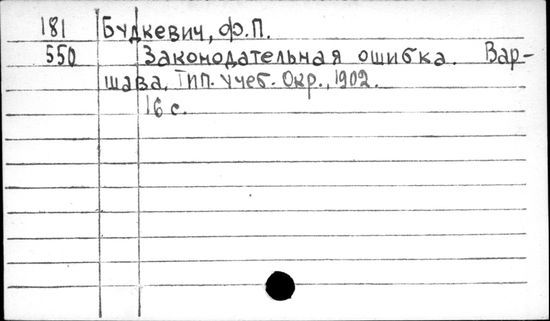 181 Будкевич, Ф.П.
550 Законодательная ошибка. Вар-
шава, Тип. Учеб. Окр., 1902.
16 с.